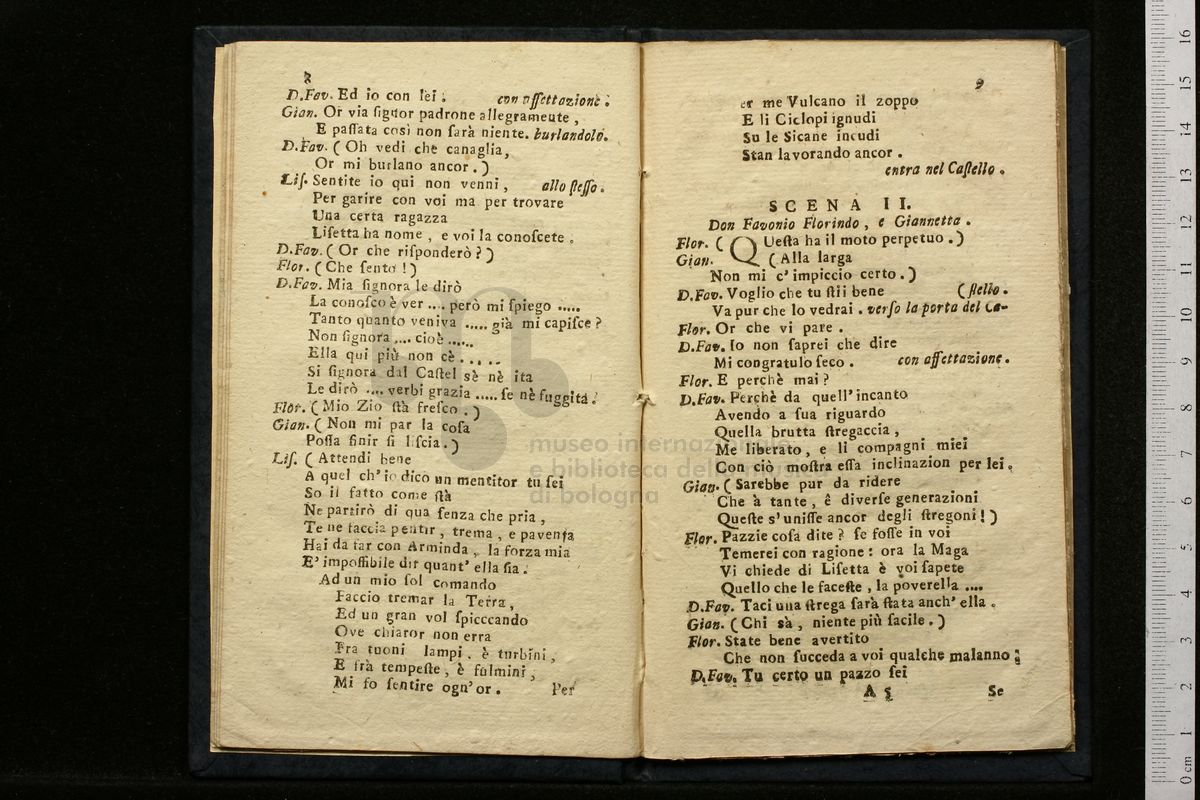 8
D.Fav. Ed io con lei. con affettazione.
Gian. Or via signor padrone allegramente,
E passata così non sarà niente. burlandolo.
D.Fav. (Oh vedi che canaglia,
Or mi burlano ancor.)
Lis. Sentite io qui non venni, allo stesso.
Per garire con voi ma per trovare
Una certa ragazza
Lisetta ha nome, e voi la conoscete.
D.Fav. (Or che risponderò?)
Flor. (Che sento!)
D.Fav. Mia signora le dirò
La conosco è ver .... però mi spiego .....
Tanto quanto veniva ..... già mi capisce?
Non signora .... cioè .....
Ella qui più non cè .....
Si signora dal Castel sè nè ita
Le dirò .... verbi grazia ..... se nè fuggita.
Flor. (Mio Zio stà fresco.)
Gian. (Non mi par la cosa
Possa finir si liscia.)
Lis. (Attendi bene
A quel ch'io dico un mentitor tu sei
So il fatto come stà
Ne partirò di qua senza che pria,
Te ne faccia pentir, trema, e paventa
Hai da far con Arminda, la forza mia
E' impossibile dir quant' ella sia.
Ad un mio sol comando
Faccio tremar la Terra,
Ed un gran vol spicccando
Ove chiaror non erra
Fra tuoni lampi, è turbini,
E frà tempeste, è fulmini,
Mi fo sentire ogn'or. Per
9
er me Vulcano il zoppo
E li Ciclopi ignudi
Su le Sicane incudi
Stan lavorando ancor.
entra nel Castello.
SCENA II.
Don Favonio Florindo, e Giannetta.
Flor. (QUesta ha il moto perpetuo.)
Gian. (Alla larga
Non mi c'impiccio certo.)
D.Fav. Voglio che tu stii bene (stello.
Va pur che lo vedrai. verso la porta del Ca-
Flor. Or che vi pare.
D.Fav. Io non saprei che dire
Mi congratulo seco. con affettazione.
Flor. E perchè mai?
D.Fav. Perchè da quell'incanto
Avendo a sua riguardo
Quella brutta stregaccia,
Me liberato, e li compagni miei
Con ciò mostra essa inclinazion per lei.
Gian. (Sarebbe pur da ridere
Che à tante, ê diverse generazioni
Queste s'unisse ancor degli stregoni!)
Flor. Pazzie cosa dite? se fosse in voi
Temerei con ragione: ora la Maga
Vi chiede di Lisetta è voi sapete
Quello che le faceste, la poverella ....
D.Fav. Taci una strega sarà stata anch' ella.
Gian. (Chi sà, niente più facile.)
Flor. State bene avertito
Che non succeda a voi qualche malanno;
D.Fav. Tu certo un pazzo sei
A 5 Se
museo internazionale
e biblioteca della musica
di bologna
0 cm 1 2 3 4 5 6 7 8 9 10 11 12 13 14 15 16